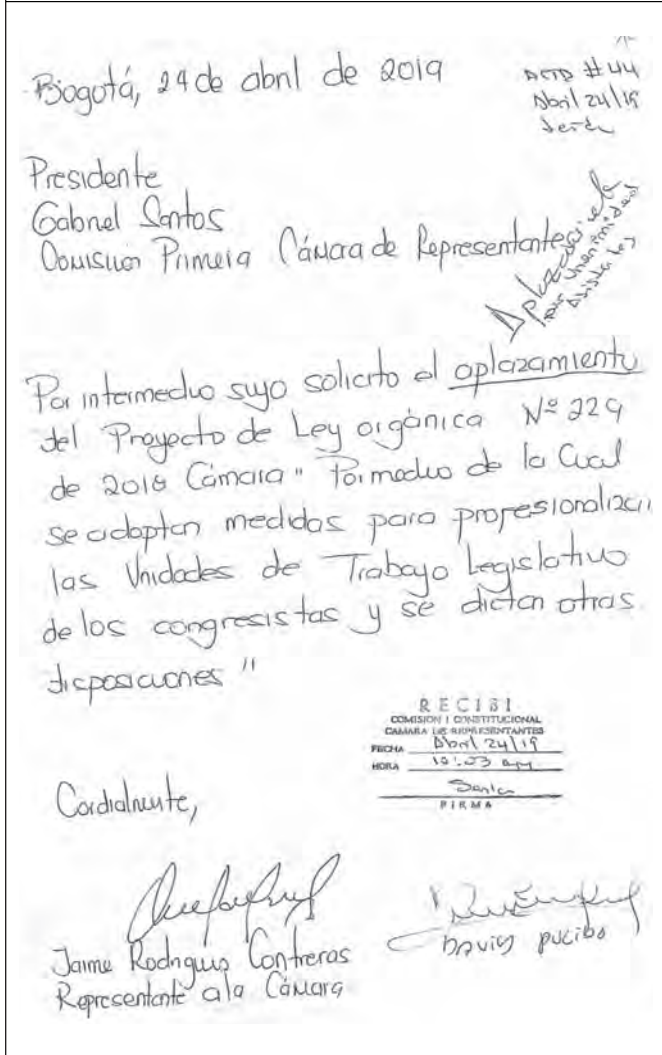 Bogotá, 24 de abril de 2019
ACTA #44
Abril 24/19
Presidente
Gabriel Santos
Comisión Primera Cámara de Representantes
Aplazar
por unanimidad
Por intermedio suyo solicito el aplazamiento
del Proyecto de Ley orgánica Nº 229
de 2018 Cámara "Por medio de la Cual
se adoptan medidas para profesionalizar
las Unidades de Trabajo Legislativo
de los congresistas y se dictan otras
disposiciones"
RECIBI
COMISION I CONSTITUCIONAL
CAMARA DE REPRESENTANTES
FECHA Abril 24/19
HORA 10:03 am
FIRMA
Cordialmente,
Jaime Rodríguez Contreras
Representante a la Cámara